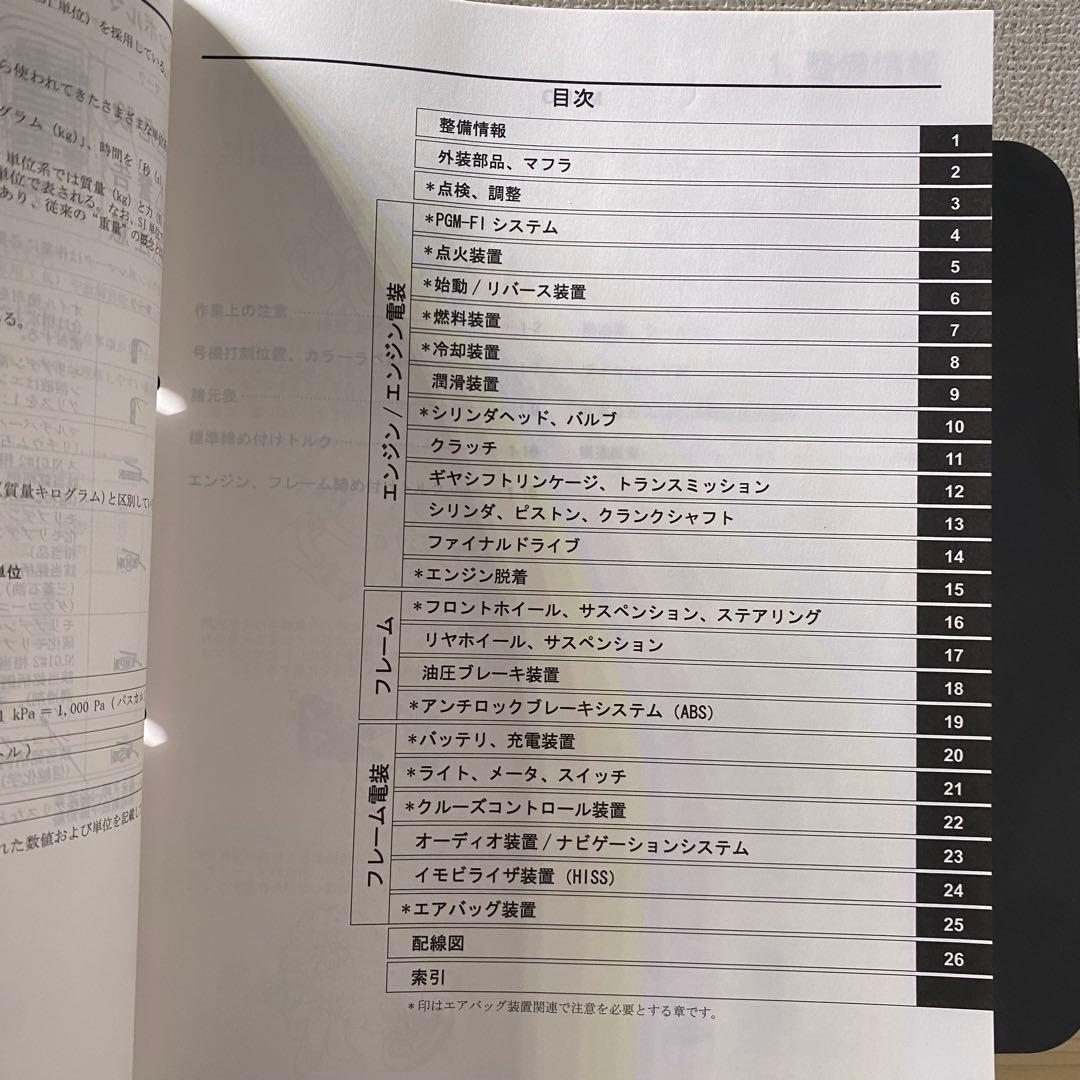 目次
整備情報 1
外装部品、マフラ 2
*点検、調整 3
エンジン / エンジン電装
*PGM-FI システム 4
*点火装置 5
*始動 / リバース装置 6
*燃料装置 7
*冷却装置 8
潤滑装置 9
*シリンダヘッド、バルブ 10
クラッチ 11
ギヤシフトリンケージ、トランスミッション 12
シリンダ、ピストン、クランクシャフト 13
ファイナルドライブ 14
*エンジン脱着 15
フレーム
*フロントホイール、サスペンション、ステアリング 16
リヤホイール、サスペンション 17
油圧ブレーキ装置 18
*アンチロックブレーキシステム (ABS) 19
フレーム電装
*バッテリ、充電装置 20
*ライト、メータ、スイッチ 21
*クルーズコントロール装置 22
オーディオ装置 / ナビゲーションシステム 23
イモビライザ装置 (HISS) 24
*エアバッグ装置 25
配線図 26
索引
*印はエアバッグ装置関連で注意を必要とする章です。
単位) を採用している。
ら使われてきたさまざまな単位
グラム (kg)」、時間を「秒 (s)
単位系では質量 (kg) と力
単位で表される。なお、SI 単位
あり、従来の “重量” の概念と
る。
(質量キログラム) と区別してい
単位
1 kPa = 1,000 Pa (パスカル
トル)
れた数値および単位を記載して
作業上の注意
号機打刻位置、カラーラベ
諸元表
標準締め付けトルク
エンジン、フレーム締め付